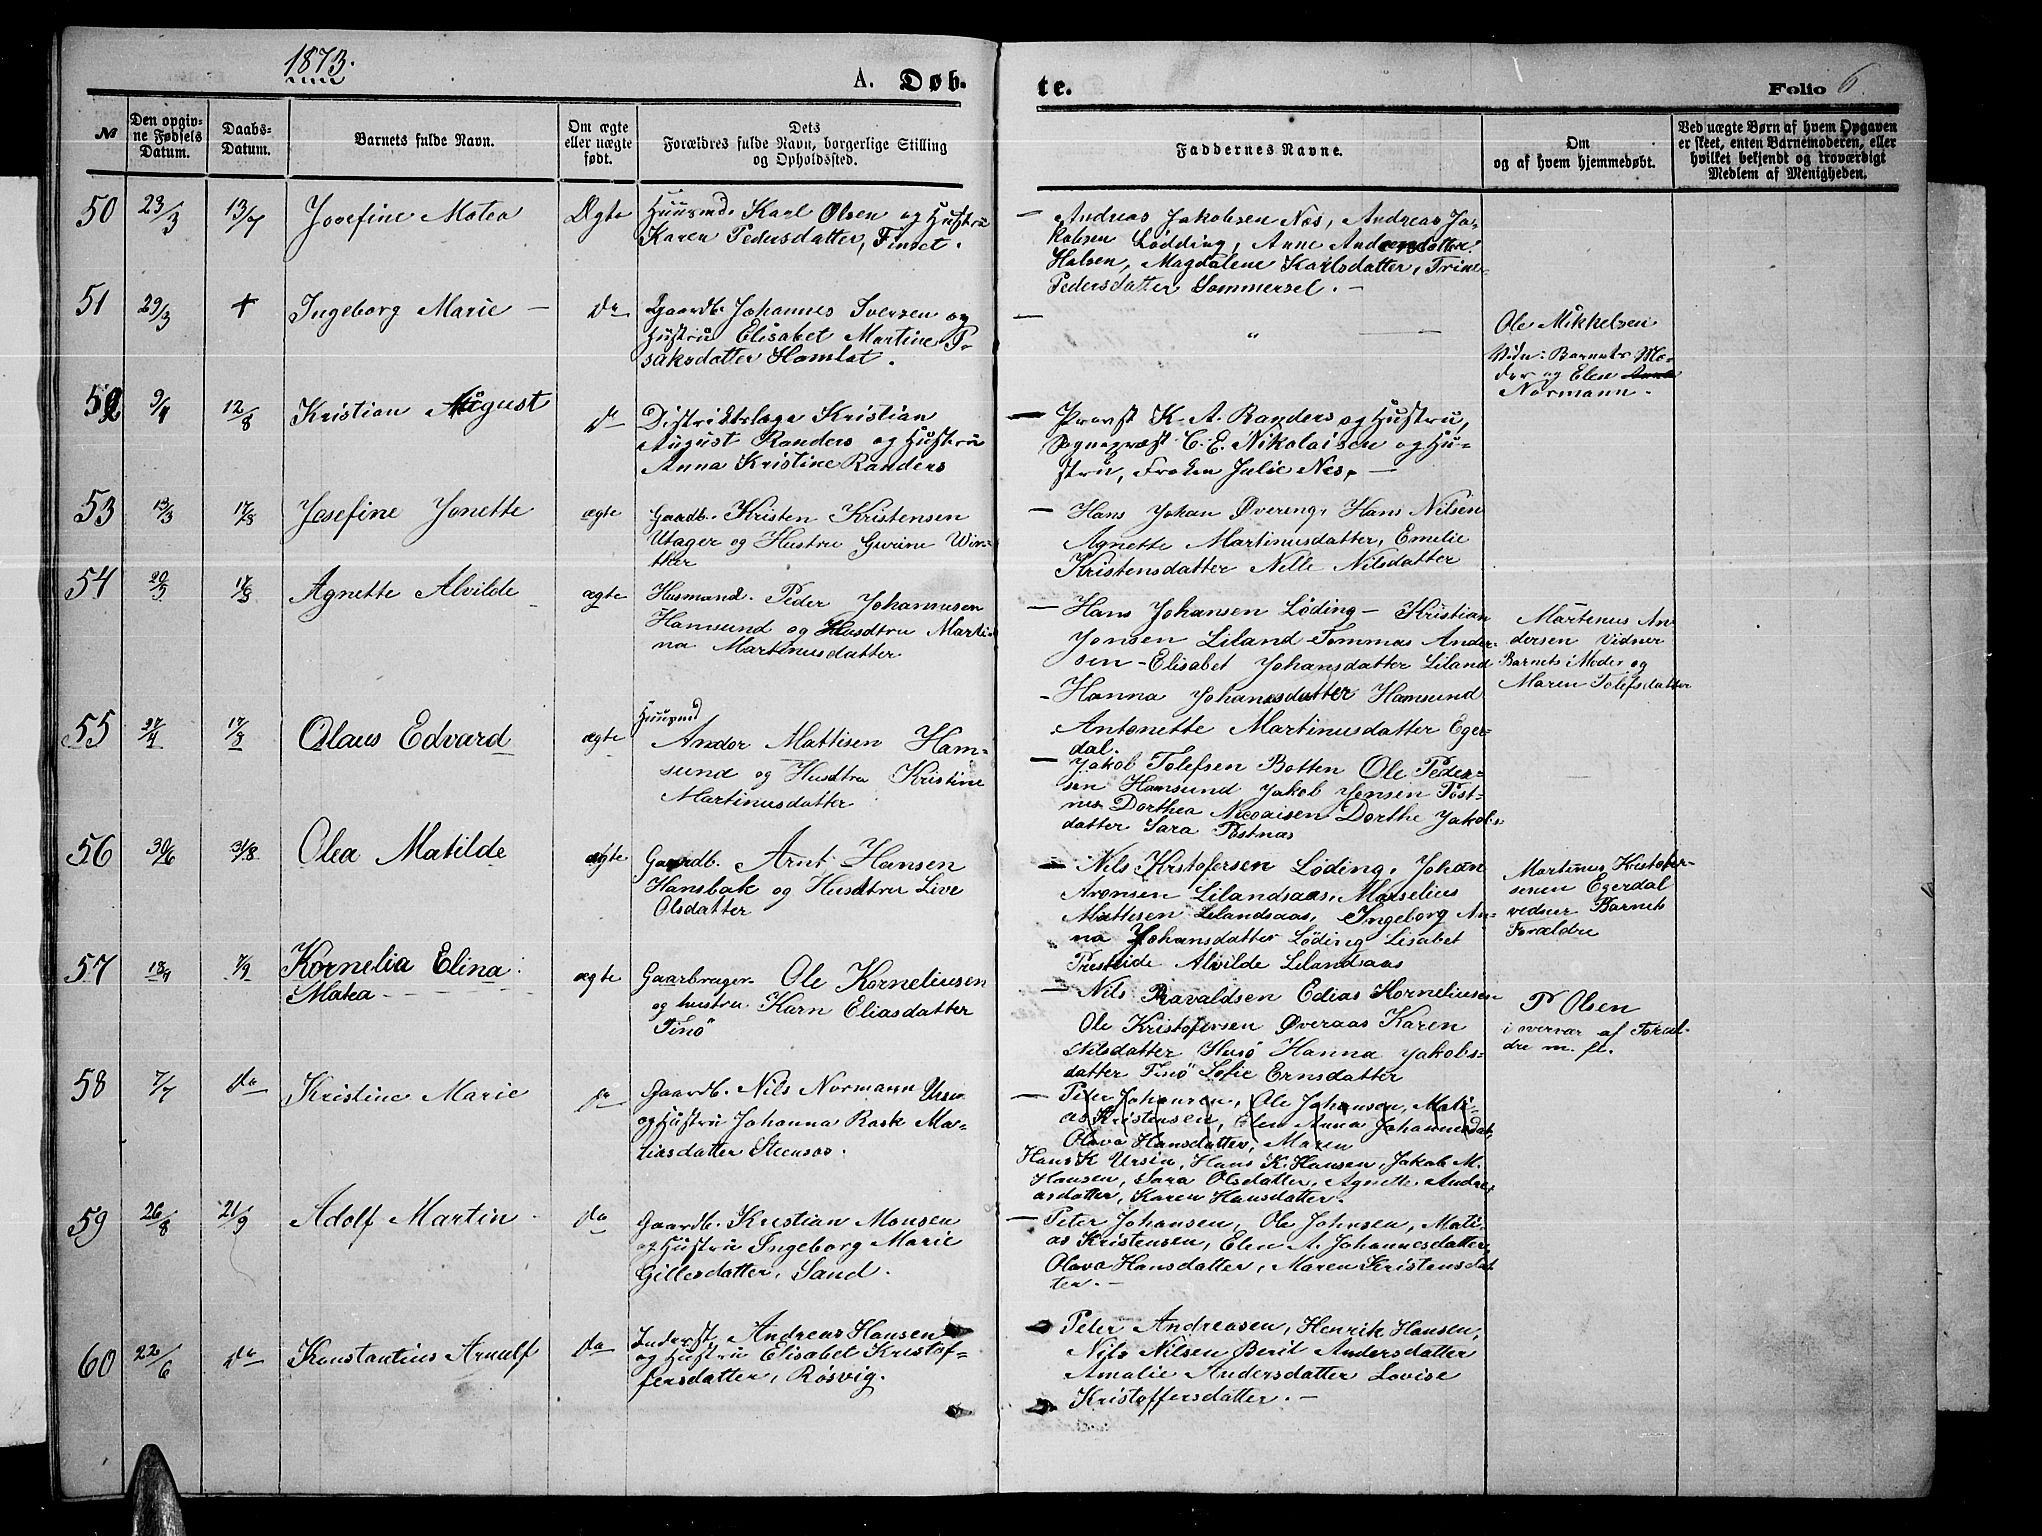 1873.
A. Døb-
te.
Folio 6.
№
Den opgiv-
ne Fødsels
Datum.
Daabs-
Datum.
Barnets fulde Navn.
Om ægte
eller uægte
født.
Dets
Forældres fulde Navn, borgerlige Stilling
og Opholdssted.
Faddernes Navne.
Om
og af hvem hjemmedøbt.
Ved uægte Børn af hvem Opgaven
er skeet, enten Barnemoderen, eller
hvilket bekjendt og troværdigt
Medlem af Menigheden.
50
23/3
13/7
Josefine Matea
Ægte
Huusmd. Karl Olsen og Hustru
Karen Pedersdatter, Finset.
— Andreas Jakobsen Nes, Andreas Ja-
kobsen Lødding, Anne Andersdatter
Halsen, Magdalene Karlsdatter, Trine
Pedersdatter Sommersel. —
51
29/3
+
Ingeborg Marie —
do
Gaardb. Johannes Iversen og
Hustru Elisabet Martine I-
saksdatter Hamlot.
— " —
Ole Mikkelsen
Vidn: Barnets Mo-
der og Elen
Normann.
52
9/4
12/8
Kristian August
do
Distriktslæge Kristian
August Randers og Hustru
Anna Kristine Randers
— Provst K. A. Randers og Hustru,
Sognepræst C. E. Nikolaisen og Hu-
stru, Frøken Julie Nes, —
53
13/3
17/8
Josefine Jonette
ægte
Gaardb. Kristen Kristensen
Utager og Hustru Gurine Win-
ther
— Hans Johan Øvereng, Hans Nilsen
Agnette Martinusdatter, Emelie
Kristensdatter Nelle Nilsdatter
54
20/3
17/8
Agnette Alvilde
ægte
Husmand. Peder Johannesen
Hamsund og Husdtru Marti-
na Martinusdatter
— Hans Johansen Løding — Kristian
Jonsen Liland Tommas Ander-
sen — Elisabet Johansdatter Liland
— Hanna Johannesdatter Hamsund
Antonette Martinusdatter Eger-
dal.
Martinus An
dersen Vidner
Barnets Moder og
Maren Tolefsdatter
55
27/4
17/8
Olaus Edvard
ægte
Huusmd
Andor Mattisen Ham-
sund og Husdtru Kristine
Martinusdatter
— Jakob Tolefsen Botten Ole Peder-
sen Hamsund Jakob Jensen Tost-
nes Dorthea Nicoaisen Dorthe Jakobs
datter Sara Tostnas
56
30/6
31/8
Olea Matilde
ægte
Gaardb. Arnt Hansen
Hansbak og Husdtru Live
Olsdatter
— Nils Kristofersen Løding, Johan
Aronsen Lilandsaas, Marselius
Mattisen Lilandsaas, Ingeborg An-
na Johansdatter Løding Lisabet
Presteide Alvilde Lilandsaas
Martinus Kristofer-
senen Egerdal
vedner Barnets
Forældre
57
18/4
7/9
Kornelia Elina
Matea
ægte
Gaarbruger Ole Korneliusen
og hustru Karn Eliasdatter
Tinø
— Nils Ravaldsen Edias Korneliusen
Ole Kristofersen Øveraas Karen
Nilsdatter Husø Hanna Jakobs-
datter Tinø Lofie Ernsdatter
P Olsen
i overvær af Foræl-
dre m. fl.
58
7/7
do
Kristine Marie
do
Gaardb. Nils Normann Ursin
og Hustru Johanna Rask Ma-
tiasdatter Steensos.
— Peter Johansen, Ole Johansen, Mati-
as Kristensen, Elen Anna Johannesdat,
Olava Hansdatter, Maren
Hans K Ursin, Hans K. Hansen, Jakob M.
Hansen, Sara Olsdatter, Agnette Andre-
asdatter, Karen Hansdatter.
59
26/8
21/9
Adolf Martin
do
Gaardb. Kristian Monsen
og Hustru Ingeborg Marie
Gillesdatter, Sand.
— Peter Johansen, Ole Johnsen, Mati-
as Kristensen, Elen A. Johannesdatter,
Olava Hansdatter, Maren Kristensdat
ter. —
60
22/6
do
Konstantius Arnulf
do
Inderst Andreas Hansen
og Hustru Elisabet Kristof-
fersdatter, Røsvig.
Peter Andreasen, Henrik Hansen,
Nils Nilsen Berit Andersdatter
Amalie Andersdatter Lovise
Kristoffersdatter. —